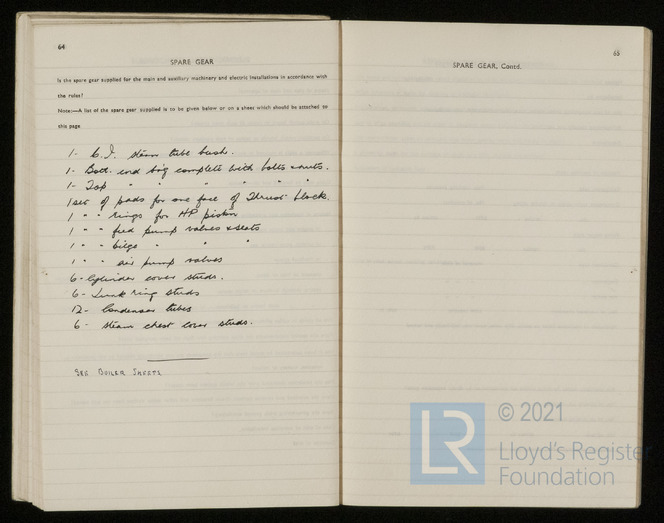 64
SPARE GEAR
Is the spare gear supplied for the main and auxiliary machinery and electric installations in accordance with
the rules?
Note:—A list of the spare gear supplied is to be given below or on a sheet which should be attached to
this page
1- C.I. stern tube bush.
1- Bott. end brg complete with bolts & nuts.
1- Top " " " " " "
1 set of pads for one face of Thrust block.
1 " " rings for HP piston
1 " " feed pump valves & seats
1 " " bilge " " "
1 " " air pump valves
6- Cylinder cover studs.
6- Junk ring studs
12- Condenser tubes
6- steam chest cover studs.
SEE BOILER SHEETS
65
SPARE GEAR, Contd.
LR
© 2021
Lloyd's Register
Foundation